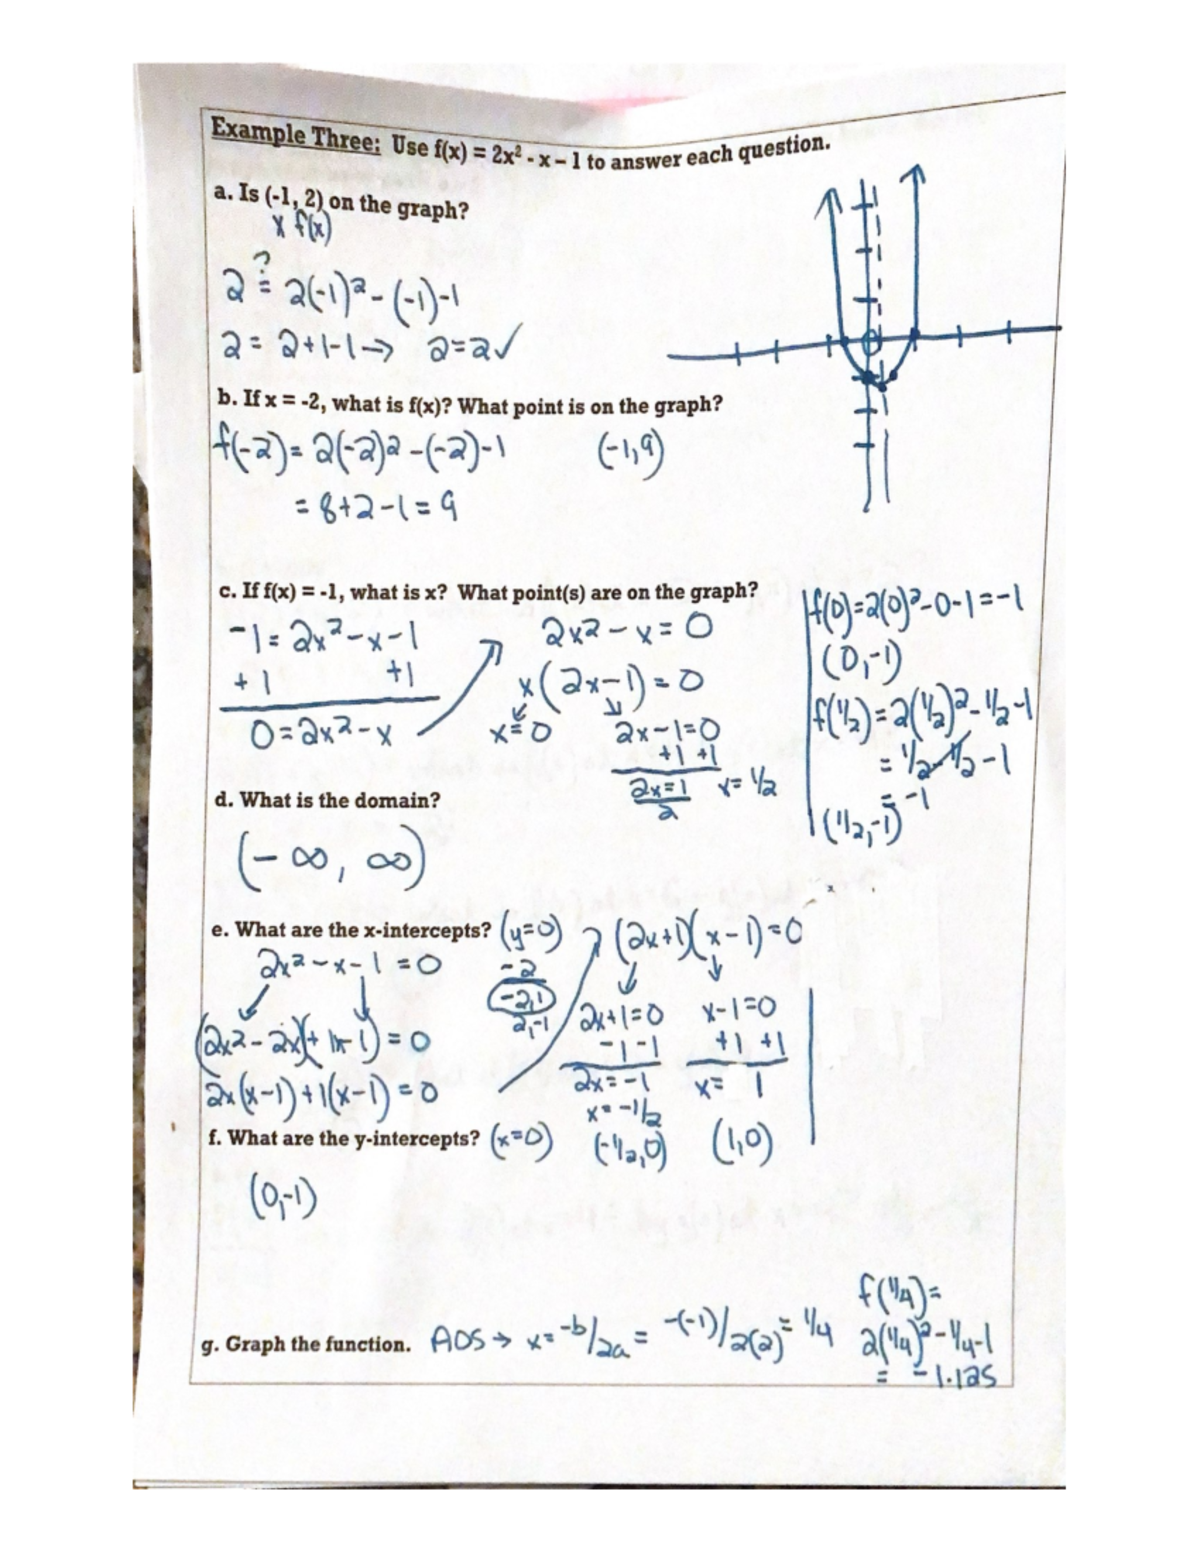 Example Three: Use f(x) = 2x² - x – 1 to answer each question.
a. Is (-1, 2) on the graph?
x f(x)
2 ≟ 2(-1)² - (-1) -1
2 = 2+1-1 → 2=2✓
b. If x = -2, what is f(x)? What point is on the graph?
f(-2) = 2(-2)² - (-2) -1 (-1,9)
= 8+2-1 = 9
c. If f(x) = -1, what is x? What point(s) are on the graph?
-1 = 2x² - x - 1
+1 +1
0 = 2x² - x
2x² - x = 0
x(2x-1) = 0
x=0 2x-1=0
+1 +1
2x=1 x=1/2
2
f(0)=2(0)²-0-1=-1
(0,-1)
f(1/2)=2(1/2)²-1/2-1
= 1/2-1/2-1
= -1
(1/2,-1)
d. What is the domain?
(-∞, ∞)
e. What are the x-intercepts? (y=0)
2x² - x - 1 = 0
(2x² - 2x)(+ 1x - 1) = 0
2x(x-1)+1(x-1) = 0
-2
-2,1
2,-1
(2x+1)(x-1)=0
2x+1=0 x-1=0
-1 -1 +1 +1
2x=-1 x= 1
x=-1/2
(-1/2,0) (1,0)
f. What are the y-intercepts? (x=0)
(0,-1)
g. Graph the function. AOS → x = -b/2a = -(-1)/2(2) = 1/4
f(1/4)=
2(1/4)²-1/4-1
= -1.125